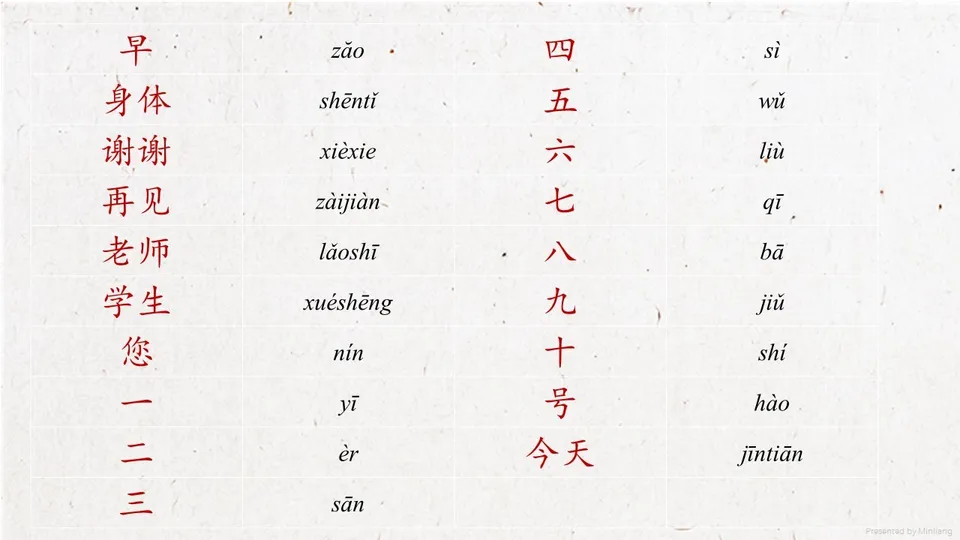 早 zǎo 四 sì
身体 shēntǐ 五 wǔ
谢谢 xièxie 六 liù
再见 zàijiàn 七 qī
老师 lǎoshī 八 bā
学生 xuéshēng 九 jiǔ
您 nín 十 shí
一 yī 号 hào
二 èr 今天 jīntiān
三 sān
Presented by Minliang